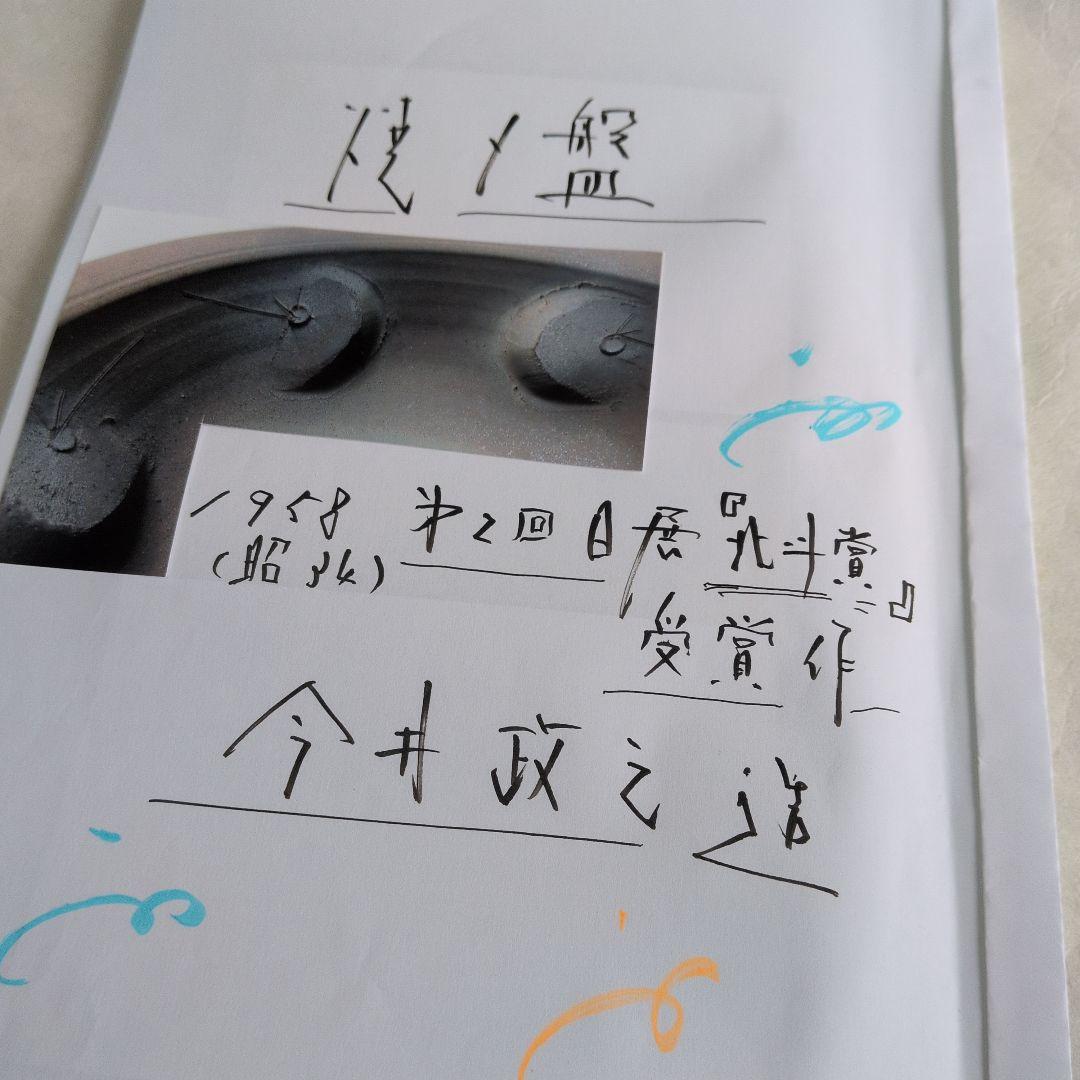 焼〆盤
1958 第2回日展『北斗賞』
(昭34)
受賞作
今井政之造